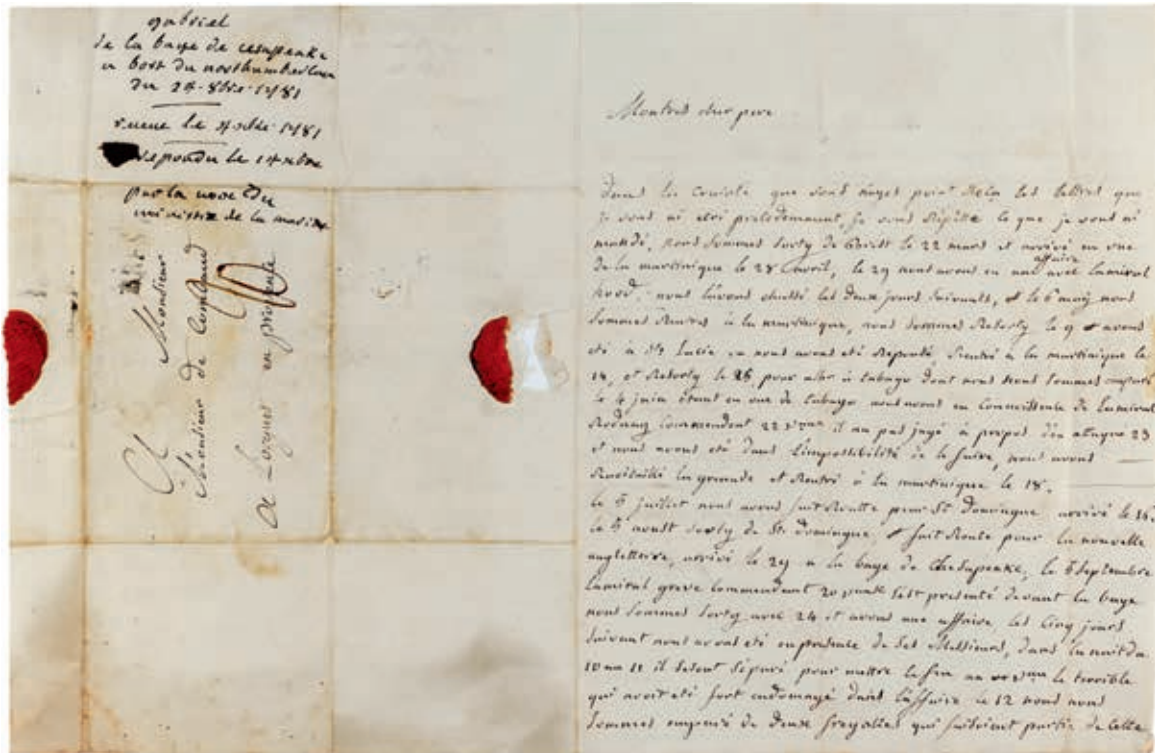 gabriel
de la baye de cesapeake
a bort du northumberlan
du 24 8bre 1781
le 1781
repondu le
par la voye du
ministre de la marine
A
Monsieur
Monsieur de Combaud
A Lorgues en provence
Montres cher pere
Dans la que vous nayes point Recu les lettres que
je vous ai precedemment, je vous Repette ce que je vous ai
mandé, nous sommes sorty de Brest le 22 mars et arrivé en vue
de la martinique le 28 avril, le 29 nous avons eu une affaire avec lamiral
hood, nous lavons chassé les deux jours suivants, et le 6 may nous
sommes Rentrés à la martinique, nous sommes Resorty le 9 et avons
eté à Ste Lucie nous avons eté Repoussé, Rentré a la martinique le
14, et Resorty le 25 pour aller à tabago dont nous nous sommes emparé
le 4 juin étant en vue de tabago nous avons eu connoissence de lamiral
Rodney Commendent 22 il na pas jugé à propos den ataque 23
et nous avons eté dans l'impossibilité de le faire, nous avons
Ravitaillé la grenade et Rentré à la martinique le 18.
le 5 juillet nous avons fait Routte pour St Domingue arrivé le 16.
le 5 aoust sorty de St. domingue, et fait Route pour la nouvelle
angletterre, arrivé le 29 a la baye de Chesapeake, le 5 septembre
lamiral grave commendant 20 sest presenté devant la baye
nous sommes sorty avec 24 et avons une affaire, les cinq jours
suivant nous avons eté en presence de ses Messieurs, dans la nuit du
10 au 11 il se sont séparé pour mettre le feu au le terrible
qui avoit eté fort endomagé dans l'affaire le 12 nous nous
sommes emparé de deux fregattes qui faisoient partie de cette